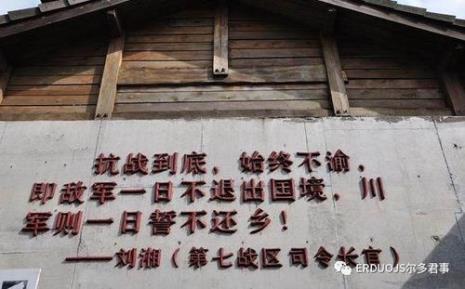 抗战到底，始终不渝，
即敌军一日不退出国境，川
军则一日誓不还乡！
——刘湘（第七战区司令长官）
ERDUOJS尔多君事